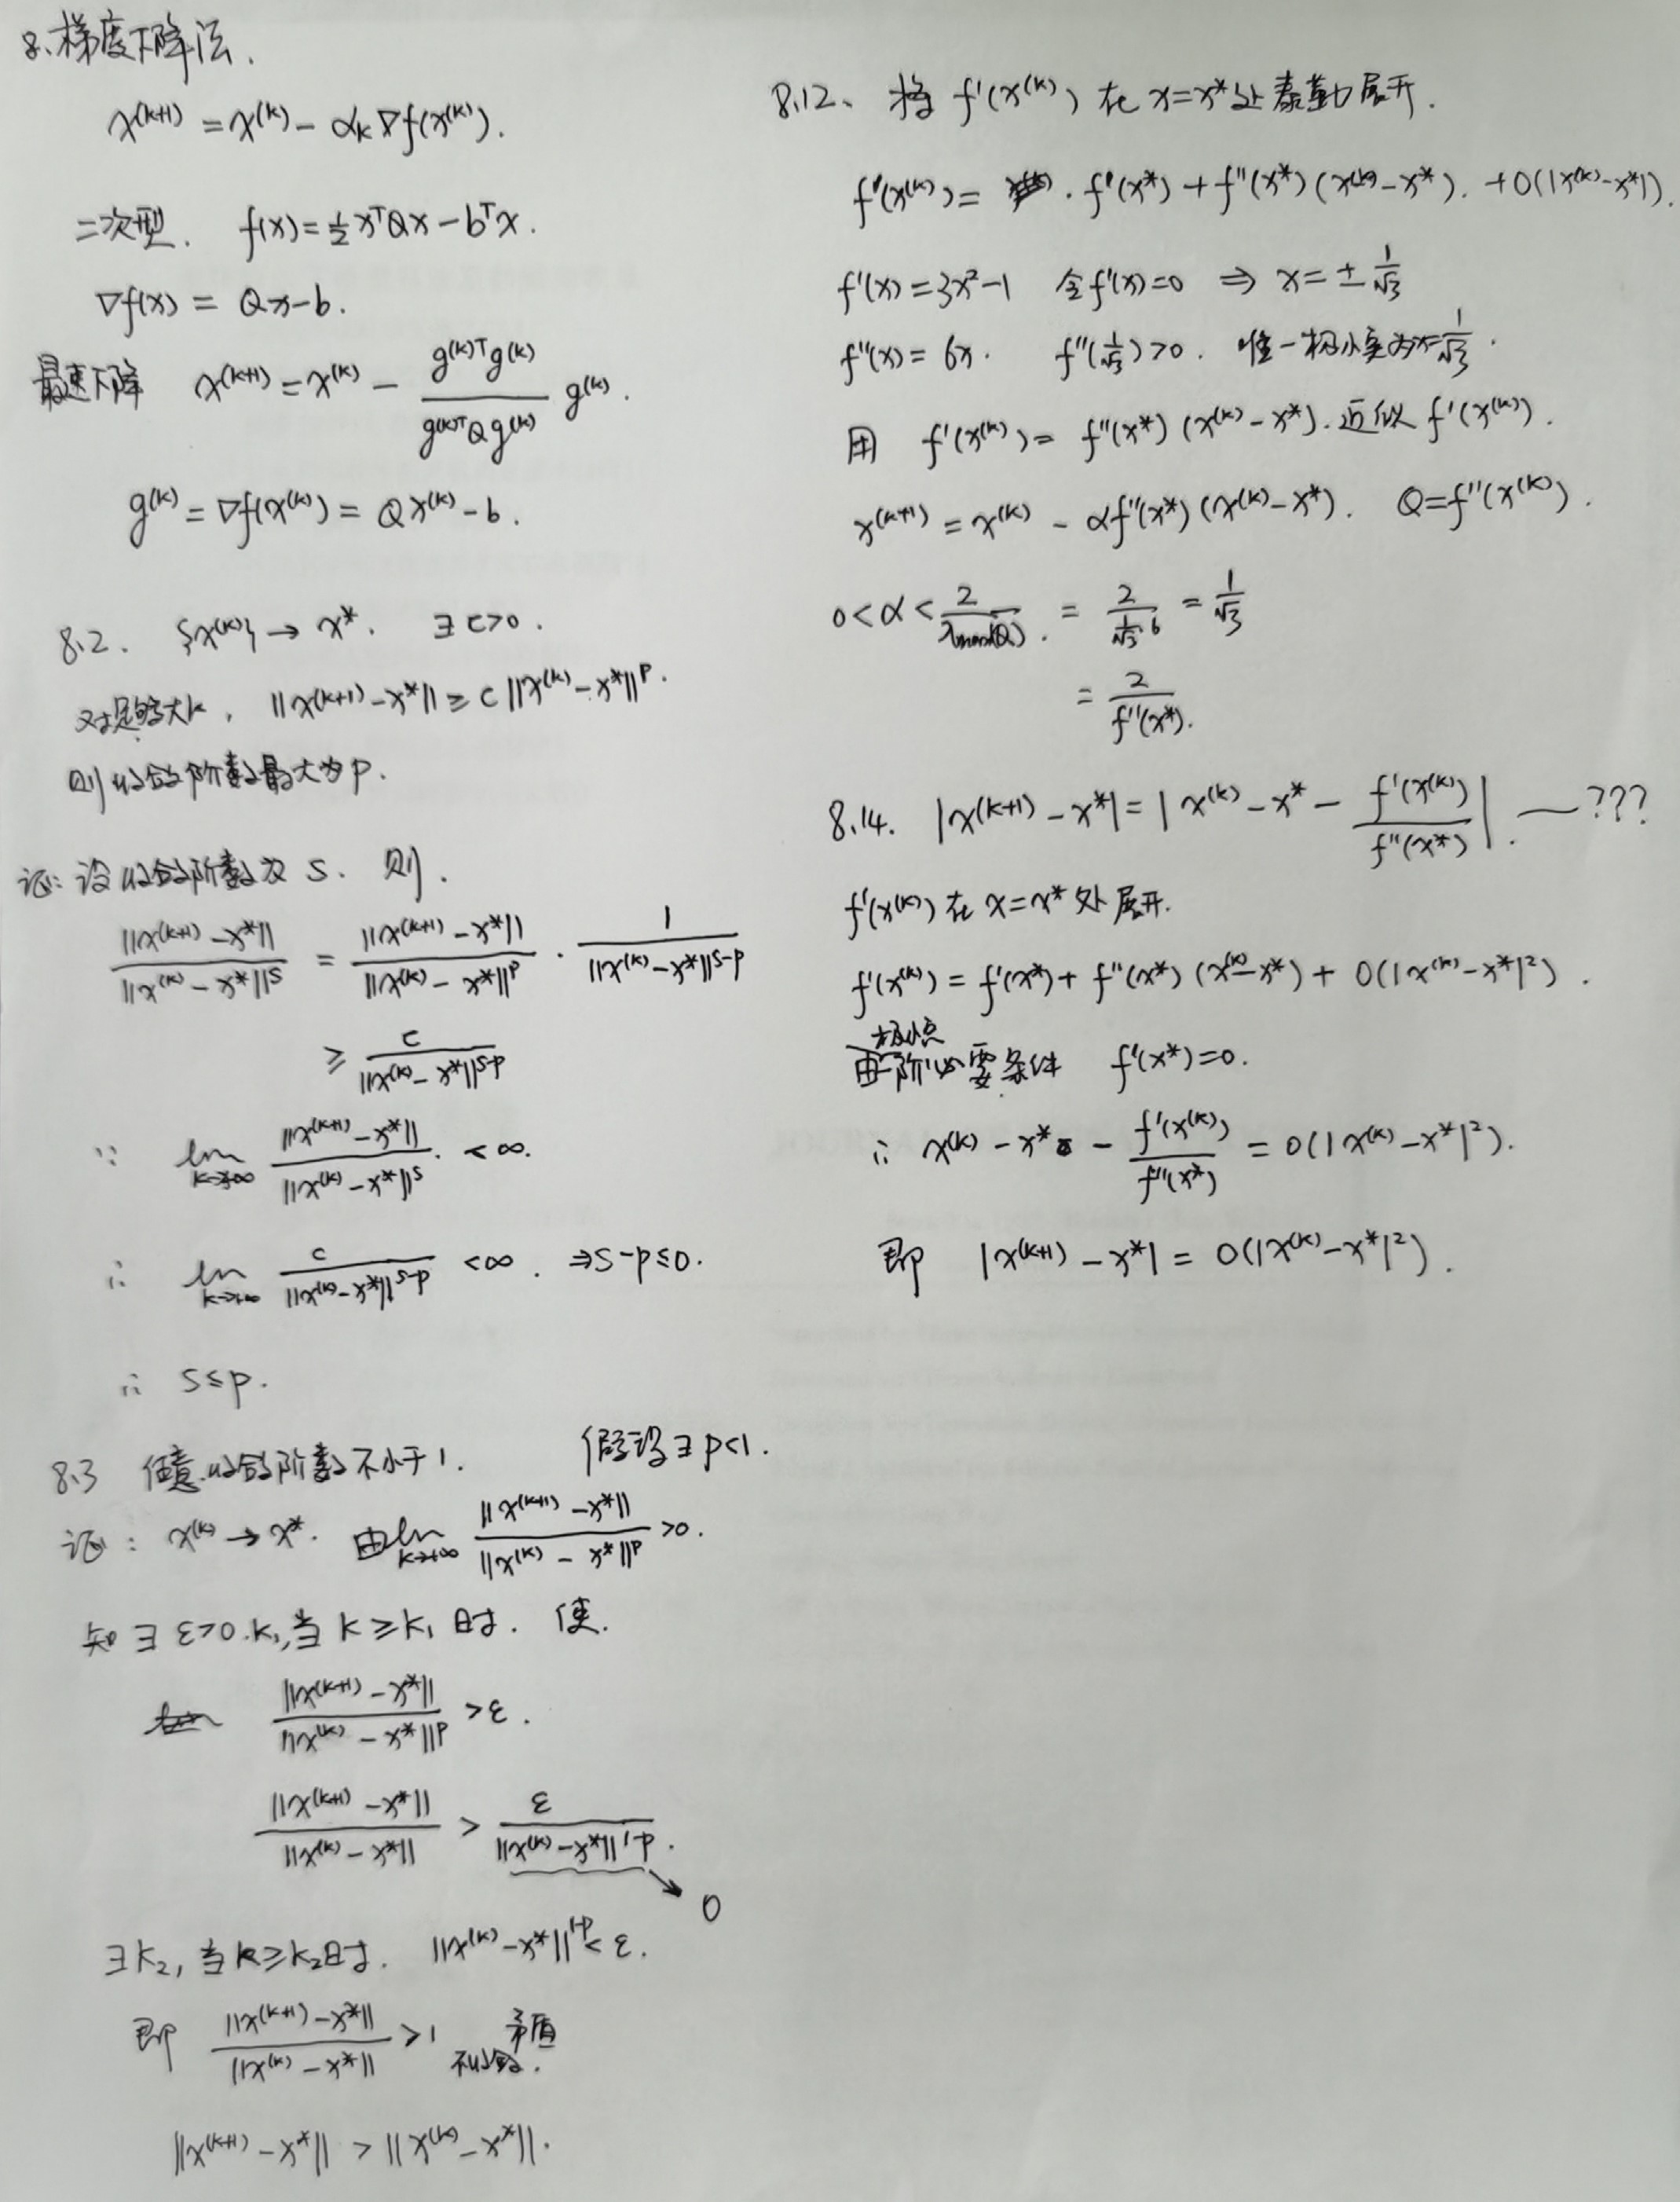 8、梯度下降法.
x^(k+1) = x^(k) - α_k ∇f(x^(k)).
二次型. f(x) = 1/2 x^T Q x - b^T x.
∇f(x) = Qx - b.
最速下降 x^(k+1) = x^(k) - (g^(k)T g^(k)) / (g^(k)T Q g^(k)) g^(k).
g^(k) = ∇f(x^(k)) = Q x^(k) - b.
8.2. {x^(k)} → x*. ∃ c>0.
对足够大k, ||x^(k+1) - x*|| ≥ c ||x^(k) - x*||^p.
则收敛阶数最大为p.
证: 设收敛阶数为 s. 则.
||x^(k+1) - x*|| / ||x^(k) - x*||^s = ||x^(k+1) - x*|| / ||x^(k) - x*||^p · 1 / ||x^(k) - x*||^(s-p)
≥ c / ||x^(k) - x*||^(s-p)
∵ lim_{k→∞} ||x^(k+1) - x*|| / ||x^(k) - x*||^s < ∞.
∴ lim_{k→∞} c / ||x^(k) - x*||^(s-p) < ∞. ⇒ s-p≤0.
∴ s≤p.
8.3 任意收敛阶数不小于1. 假设∃ p<1.
证: x^(k) → x*. 由 lim_{k→+∞} ||x^(k+1) - x*|| / ||x^(k) - x*||^p >0.
知 ∃ ε>0. k₁, 当 k ≥ k₁ 时. 使.
||x^(k+1) - x*|| / ||x^(k) - x*||^p > ε.
||x^(k+1) - x*|| / ||x^(k) - x*|| > ε / ||x^(k) - x*||^(1-p).
0
∃k₂, 当k≥k₂时. ||x^(k) - x*||^(1-p) < ε.
即 ||x^(k+1) - x*|| / ||x^(k) - x*|| > 1 矛盾
不收敛.
||x^(k+1) - x*|| > ||x^(k) - x*||.
8.12、将 f'(x^(k)) 在 x=x*处泰勒展开.
f'(x^(k)) = f'(x*) + f''(x*) (x^(k) - x*). + O(|x^(k) - x*|).
f'(x) = 3x²-1 令f'(x)=0 ⇒ x= ± 1/√3
f''(x) = 6x. f''(1/√3) >0. 唯一极小点为x=1/√3.
用 f'(x^(k)) = f''(x*) (x^(k) - x*). 近似 f'(x^(k)).
x^(k+1) = x^(k) - αf''(x*) (x^(k) - x*). Q=f''(x^(k)).
0<α< 2/λmax(Q). = 2 / (1/√3 · 6) = 1/√3
= 2 / f''(x*).
8.14. |x^(k+1) - x*| = | x^(k) - x* - f'(x^(k)) / f''(x*) |. —???
f'(x^(k)) 在 x=x* 处展开.
f'(x^(k)) = f'(x*) + f''(x*) (x^(k) - x*) + O(|x^(k) - x*|²).
极小点
由一阶必要条件 f'(x*)=0.
∴ x^(k) - x* - f'(x^(k)) / f''(x*) = O(|x^(k) - x*|²).
即 |x^(k+1) - x*| = O(|x^(k) - x*|²).